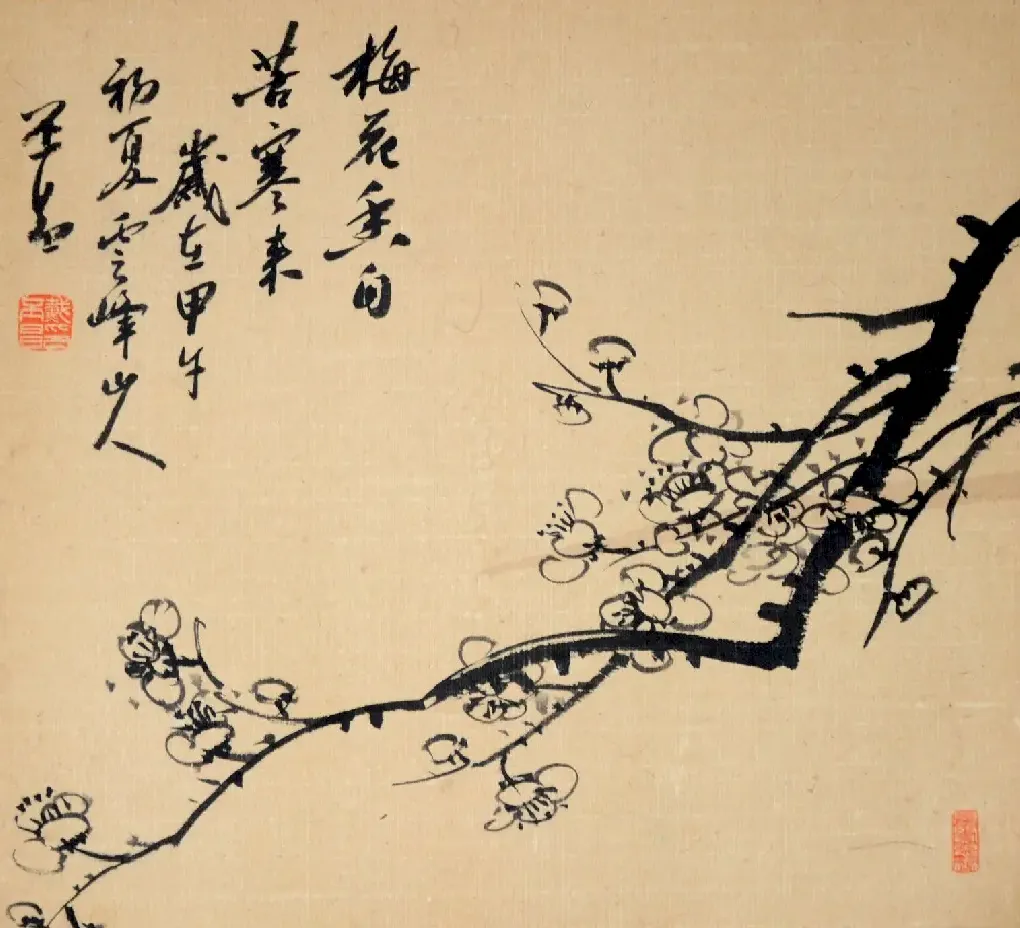 梅花香自
苦寒来
歲在甲午
初夏雲峰山人